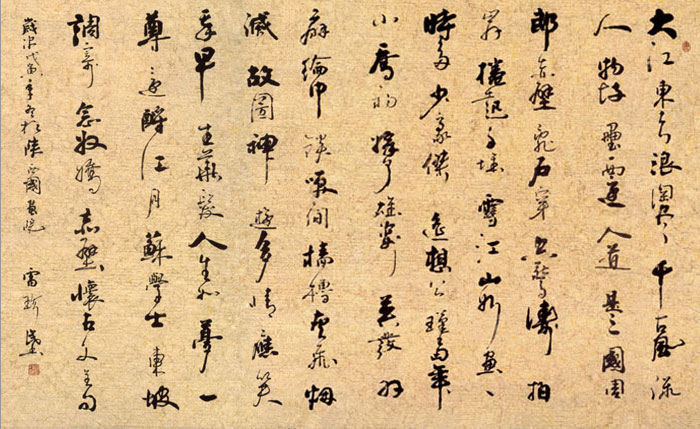 大江東去浪淘盡千古風流
人物故壘西邊人道是三國周
郎赤壁亂石穿空驚濤拍
岸捲起千堆雪江山如畫一
時多少豪傑遙想公瑾當年
小喬初嫁了雄姿英發羽
扇綸巾談笑間檣櫓灰飛煙
滅故國神遊多情應笑
我早生華髮人生如夢一
尊還酹江月蘇學士東坡
調寄念奴嬌赤壁懷古
歲次戊寅年冬於